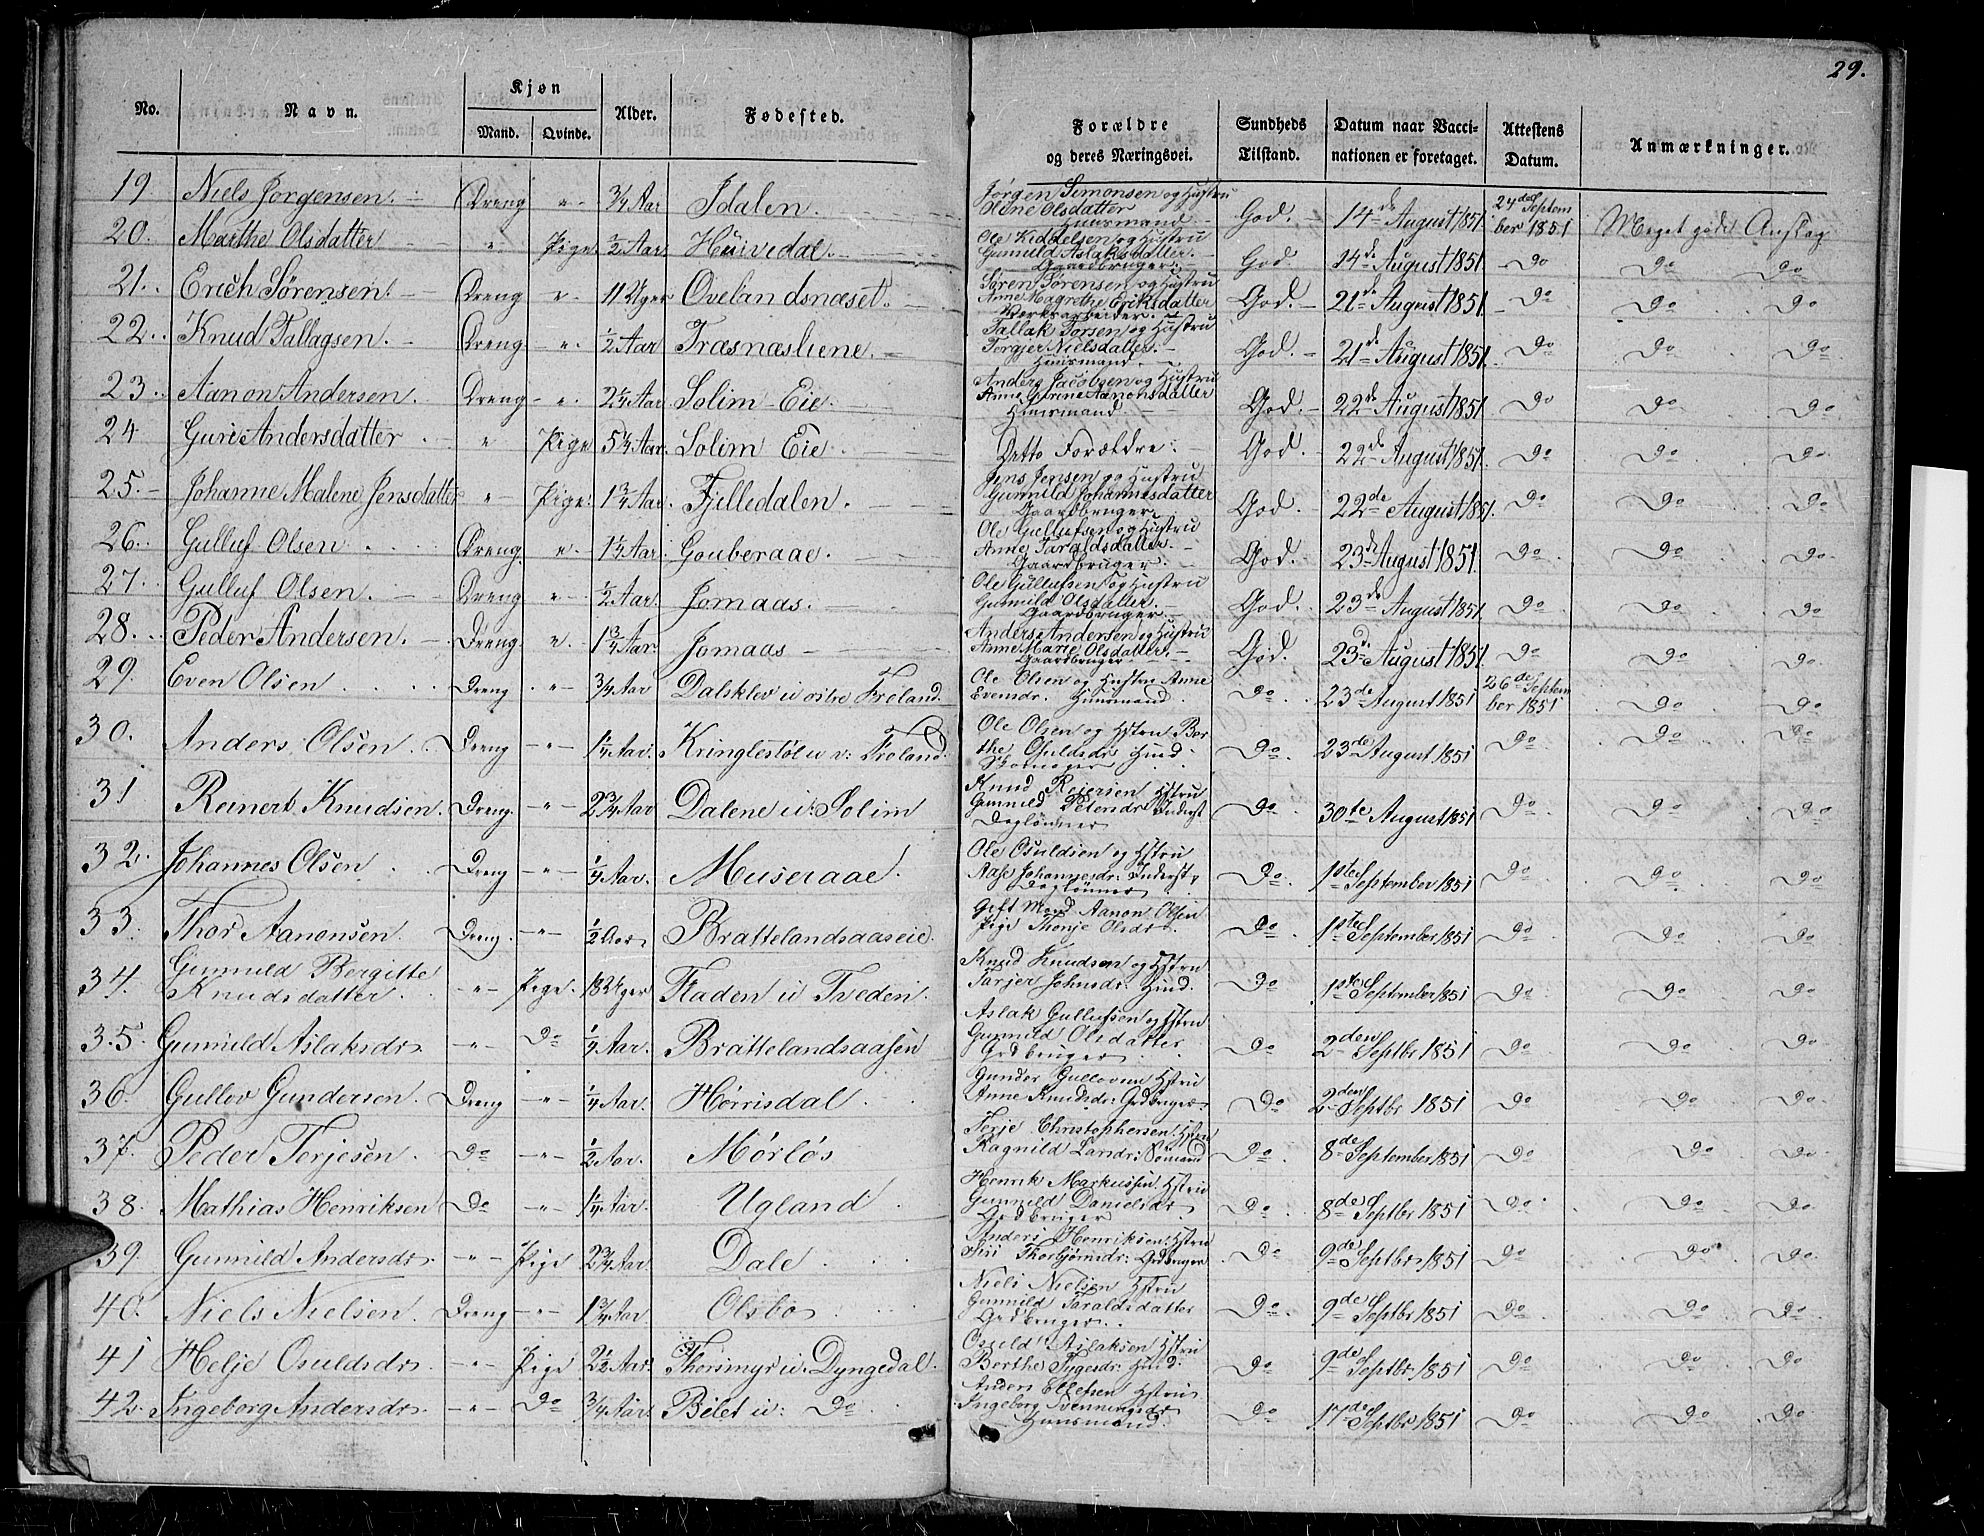 29.
No. Navn. Kjøn Mand. Qvinde. Alder. Fødested. Forældre og deres Næringsvei. Sundheds Tilstand. Datum naar Vaccinationen er foretaget. Attestens Datum. Anmærkninger.
19. Niels Jørgensen. Dreng " 3/4 Aar Idalen. Jørgen Simonsen og Hustru
Olene Olsdatter Huusmand God. 14de August 1851 24de September 1851 Meget gode Anslag
20. Marthe Olsdatter " Pige 1/2 Aar Huivedal. Ole Kiddelsen og Hustru
Gunnild Aslaksdatter. Gaardbruger. God. 14de August 1851 Do Do Do
21. Erich Sørensen. Dreng " 11 Uger Ovelandsnæset. Søren Sørensen og Hustru
Anne Magrethe Eriksdatter Værksarbeider. God. 21de August 1851 Do Do Do
22. Knud Tallagsen. Dreng " 1/2 Aar Træsnæsliene. Tallak Torsen og Hustru
Torgjer Nielsdatter. Huusmand. God. 21de August 1851 Do Do Do
23. Aanon Andersen. Dreng " 2 1/4 Aar Solim Eie. Anders Jacobsen og Hustru
Anne Gurine Aanonsdatter Huusmand God. 22de August 1851 Do Do Do
24 Guri Andersdatter " Pige 5 1/4 Aar. Solim Eie. Detto Forældre. God. 22de August 1851 Do Do Do
25. Johanne Malene Jensdatter " Pige. 1 3/4 Aar. Fjelledalen. Jens Jensen og Hustru
Gunnild Johannesdatter Gaardbruger God. 22de August 1851. Do Do Do
26. Gulluf Olsen Dreng " 1 1/4 Aar. Gouberaae. Ole Gullufsen og Hustru
Anne Taraldsdatter. Gaardbruger. God. 23de August 1851. Do Do Do
27. Gulluf Olsen. Dreng " 1/2 Aar. Jomaas. Ole Gullufsen og Hustru
Gunnild Olsdatter. Gaardbruger. God. 23de August 1851 Do Do Do
28. Peder Andersen. Dreng " 1 3/4 Aar. Jomaas Anders Andersen og Hustru
Anne Marie Olsdatter. Gaardbruger God. 23de August 1851 Do Do Do
29. Even Olsen Dreng " 3/4 Aar Dalsklev u østre Froland. Ole Olsen og Hustru Anne
Evensdr. Huusmand Do 23de August 1851 26de September 1851 Do Do
30. Anders Olsen Dreng " 1 1/4 Aar. Kringlestøl u v: Froland Ole Olsen og Hstru Berthe
Osuldsdr Husd Do 23de August 1851 Do Do Do
31 Reinert Knudsen. Dreng. " 2 3/4 Aar Dalene u: Solim Knud Hstru
Gunnild Inderst
Daglønner Do 30te August 1851 Do Do Do
32. Johannes Olsen Dreng " 1/4 Aar. Museraae. Ole Osuldsen og Hstru
Aase Johannesdr: Inderst,
Daglønner Do. 1ste September 1851 Do Do Do
33. Thor Aanonsen. Dreng. " 1/2 Aar Brattelandsaaseie. Gift Mand Aanon Olsen
Pige Thonje Olsdr Do. 1ste September 1851 Do Do Do
34. Gunnild Bergitte
Knudsdatter " Pige. 18 Uger Fladen u Tveden. Knud Knudsen og Hstru
Tarjer Johnsdr. Husd. Do 1ste September 1851 Do Do Do
35. Gunnild Aslaksdr. " Do 1/4 Aar. Brattelandsaasen Aslak Gullufsen og Hstru
Gunnild Olsdatter
Grdbruger Do 2den Septbr 1851 Do Do Do
36. Gullov Gundersen. Dreng " 1/4 Aar. Hørrisdal Gunder Gullovsen Hstru
Anne Knudsdr. Grdbruger Do 2den Septbr 1851 Do Do Do
37. Peder Terjesen. Do " 1/2 Aar. Mørløs Terje Christophersen Hstru
Ragnild Larsdr: Sømand Do. 8de September 1851 Do Do Do
38. Mathias Henriksen Do " 1 1/4 Aar. Ugland Henrik Markussen Hstru
Gunnild Danielsdr
Grdbruger Do 8de Septbr 1851 Do Do Do
39. Gunnild Andersdr. " Pige 2 3/4 Aar. Dale Anders Henriksen Hstru
Thorbjørnsdr: Grdbruger Do 9de Septbr 1851 Do Do Do
40. Niels Nielsen. Dreng " 1 3/4 Aar Olsbo Niels Nielsen Hstru
Gunnild Taraldsdatter
Grdbruger. Do 9de Septbr 1851 Do Do Do
41 Helje Osuldsdr. " Pige 2 1/2 Aar. Thorsmyr u: Dyngedal. Osuld Aslaksen Hstru
Berthe Husd. Do 9de Septbr 1851 Do Do Do
42. Ingeborg Andersdr. " Do 3/4 Aar. Bilet u: Do Anders Ellefsen Hstru
Ingeborg Svenningsdr
Huusmand. Do 17de Septbr 1851 Do Do Do